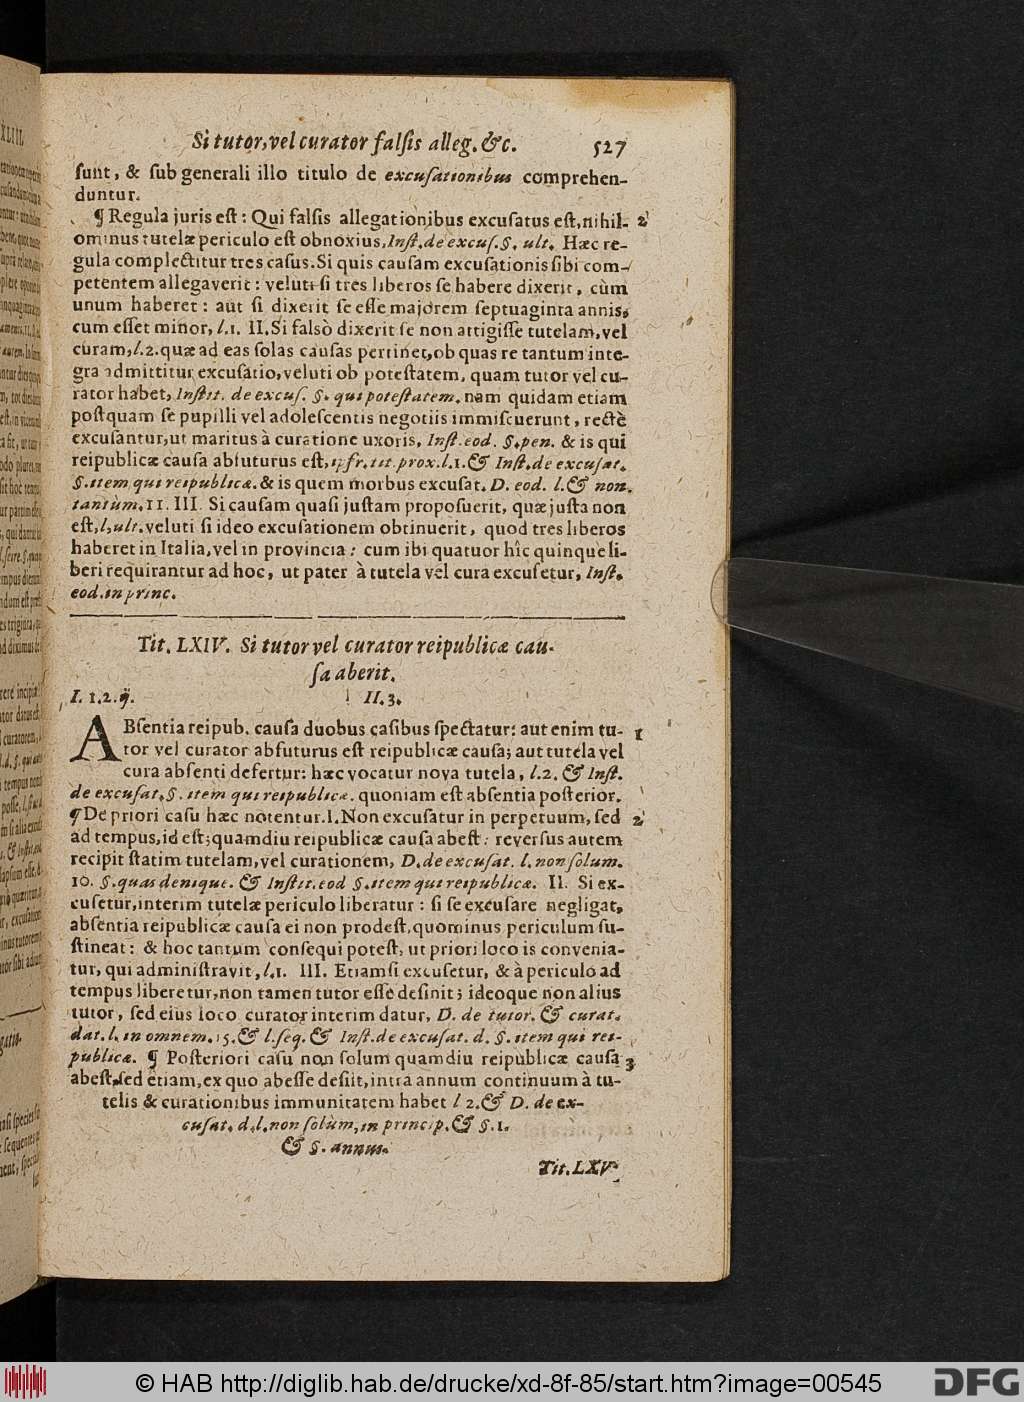 Si tutor, vel curator falsis alleg. &c. 527
sunt, & sub generali illo titulo de excusationibus comprehen-
duntur.
¶ Regula juris est: Qui falsis allegationibus excusatus est, nihil- 2
ominus tutelæ periculo est obnoxius, Inst. de excus. §. ult. Hæc re-
gula complectitur tres casus. Si quis causam excusationis sibi com-
petentem allegaverit: veluti si tres liberos se habere dixerit, cùm
unum haberet: aut si dixerit se esse majorem septuaginta annis,
cum esset minor, l.1. II. Si falsò dixerit se non attigisse tutelam, vel
curam, l.2. quæ ad eas solas causas pertinet, ob quas re tantum inte-
gra admittitur excusatio, veluti ob potestatem, quam tutor vel cu-
rator habet, Instit. de excus. §. qui potestatem. nam quidam etiam
postquam se pupilli vel adolescentis negotiis immiscuerunt, rectè
excusantur, ut maritus à curatione uxoris, Inst. eod. §. pen. & is qui
reipublicæ causa abfuturus est, infr. tit. prox. l.1. & Inst. de excusat.
§. item qui reipublicæ. & is quem morbus excusat. D. eod. l. & non.
tantùm. 11. III. Si causam quasi justam proposuerit, quæ justa non
est, l. ult. veluti si ideo excusationem obtinuerit, quod tres liberos
haberet in Italia, vel in provincia: cum ibi quatuor hîc quinque li-
beri requirantur ad hoc, ut pater à tutela vel cura excusetur, Inst.
eod. in princ.
Tit. LXIV. Si tutor vel curator reipublicæ cau-
sa aberit.
I. 1. 2. II. 3.
ABsentia reipub. causa duobus casibus spectatur: aut enim tu- 1
tor vel curator abfuturus est reipublicæ causa; aut tutela vel
cura absenti defertur: hæc vocatur nova tutela, l.2. & Inst.
de excusat. §. item qui reipublicæ. quoniam est absentia posterior.
¶ De priori casu hæc notentur. I. Non excusatur in perpetuum, sed 2
ad tempus, id est; quamdiu reipublicæ causa abest: reversus autem
recipit statim tutelam, vel curationem, D. de excusat. l. non solum.
10. §. quas denique. & Instit. eod §. item qui reipublicæ. II. Si ex-
cusetur, interim tutelæ periculo liberatur: si se excusare negligat,
absentia reipublicæ causa ei non prodest, quominus periculum su-
stineat: & hoc tantum consequi potest, ut priori loco is convenia-
tur, qui administravit, l.1. III. Etiamsi excusetur, & à periculo ad
tempus liberetur, non tamen tutor esse desinit; ideoque non alius
tutor, sed eius loco curator interim datur, D. de tutor. & curat.
dat. l. in omnem. 15. & l. seq. & Inst. de excusat. d. §. item qui rei-
publicæ. ¶ Posteriori casu non solum quamdiu reipublicæ causa 3
abest, sed etiam, ex quo abesse desiit, intra annum continuum à tu-
telis & curationibus immunitatem habet l 2. & D. de ex-
cusat. d. l. non solùm, in princip. & §. 1.
& §. annus.
Tit. LXV.
© HAB http://diglib.hab.de/drucke/xd-8f-85/start.htm?image=00545
DFG